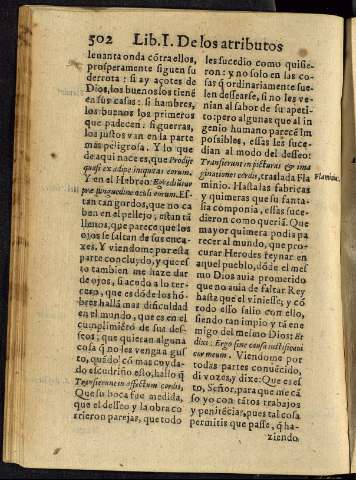 502 Lib. I. De los atributos
leuanta onda cõtra ellos,
prosperamente siguen su
derrota: si ay açotes de
Dios, los buenos los tiene
en sus casas: si hambres,
los buenos los primeros
que padecen: si guerras,
los justos van en la parte
mas peligrosa. Y lo que
de aqui nace es, que Prodijt
quasi ex adipe iniquitas eorum.
Y en el Hebreo: Egrediũtur
præ pinguedine oculi eorum. Es-
tan tan gordos, que no ca
ben en el pellejo, estan tã
llenos, que parece que los
ojos se saltan de sus enca-
xes. Y viendome por esta
parte concluydo, y que es
to tambien me haze dar
de ojos, si acudo a lo ter-
cero, que es dõde los hõ-
bres hallã mas dificultad
en el mundo, que es en el
cumplimiẽto de sus des-
seos; que quieran alguna
cosa q̃ no les venga a gus
to, quãdo cõ mas cuyda-
do escudriño esto, hallo q̃
Transierunt in affectum cordis,
Que su boca fue medida,
que el desseo y la obra co
rrieron parejas, que todo
les sucedio como quisie-
ron: y no solo en las co-
sas q̃ ordinariamente sue
len dessearse, si no les ve-
nian al sabor de su apeti-
to: pero algunas que al in
genio humano parecẽ im
possibles, essas les suce-
dian al modo del desseo:
Transierunt in picturas & ima
ginationes cordis, traslada Fla
minio. Flaminio.
Hasta las fabricas
y quimeras que su fanta-
sia componia, essas suce-
dieron como queriã. Que
mayor quimera podia pa-
recer al mundo, que pro-
curar Herodes reynar en
aquel pueblo, dõde el mes
mo Dios auia prometido
que no auia de faltar Rey
hasta que el viniesse, y cõ
todo esso salio con ello,
siendo tan impio y tã ene
migo del mesmo Dios: Et
dixi: Ergo sine causa iustificaui
cor meum. Viendome por
todas partes conuẽcido,
di vozes, y dixe: Que es es
to, Señor, para que me cã
so yo con tãtos trabajos
y penitẽcias, pues tal cosa
permitis que passe, q̃ ha-
ziendo